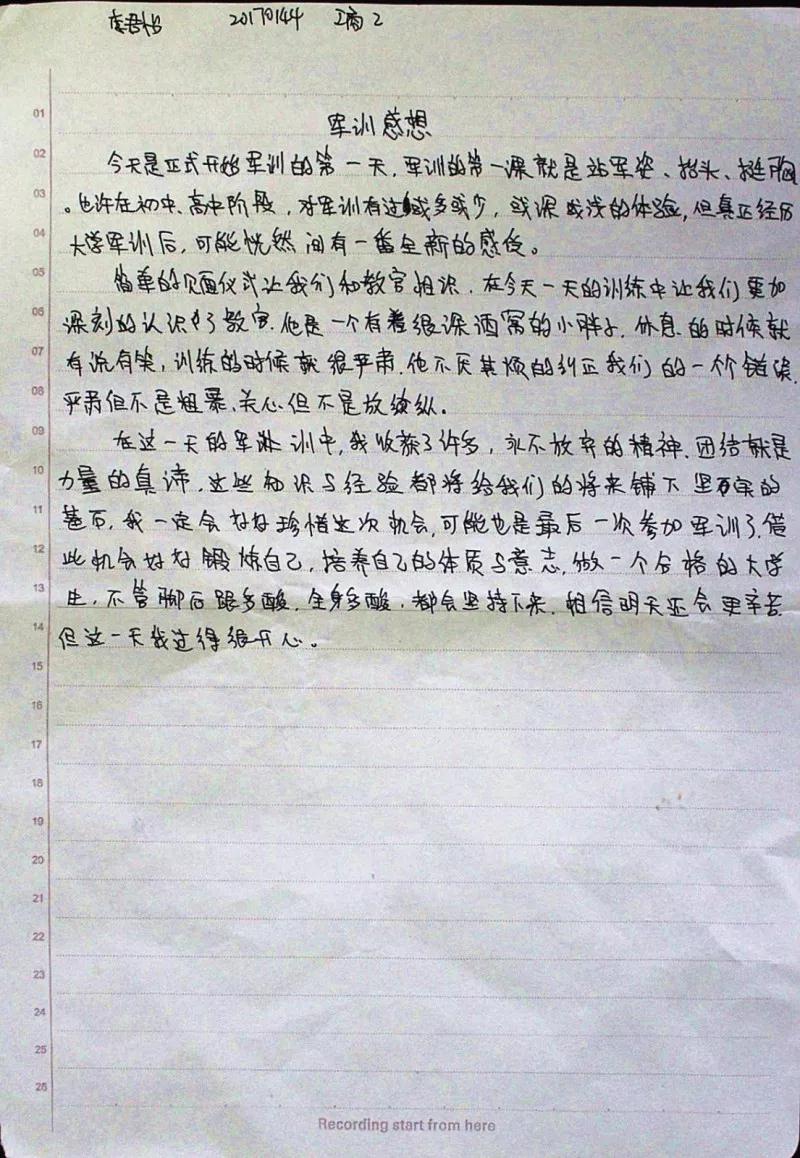 李君怡 20170144 工商2
01
军训感想
02
今天是正式开始军训的第一天，军训的第一课就是站军姿、抬头、挺胸
03
。也许在初中、高中阶段，对军训有过或多或少，或深或浅的体验，但真正经历
04
大学军训后，可能恍然间有一番全新的感受。
05
简单的见面仪式让我们和教官相识，在今天一天的训练中让我们更加
06
深刻的认识了教官，他是一个有着很深酒窝的小胖子，休息的时候就
07
有说有笑，训练的时候就很严肃，他不厌其烦的纠正我们的一个错误，
08
严肃但不是粗暴，关心但不是放纵。
09
在这一天的军训中，我收获了许多，永不放弃的精神，团结就是
10
力量的真谛，这些知识与经验都将给我们的将来铺下坚实的
11
基石，我一定会好好珍惜这次机会，可能也是最后一次参加军训了，借
12
此机会好好锻炼自己，培养自己的体质与意志，做一个合格的大学
13
生，不管脚后跟多酸，全身多酸，都会坚持下来，相信明天还会更辛苦
14
但这一天我过得很开心。
15
16
17
18
19
20
21
22
23
24
25
26
Recording start from here